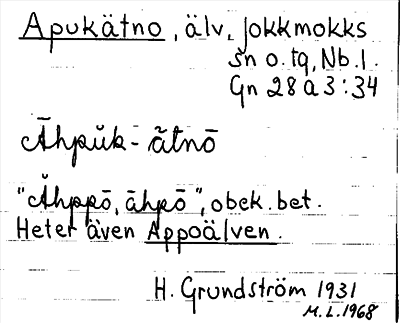 Apukätno, älv, Jokkmokks
sn o. tg, Nb. l.
Gn 28 a 3:34
Āhpŭk-ätnō
"Ăhppō, āhpō", obek. bet.
Heter även Appoälven.
H. Grundström 1931
M.L. 1968